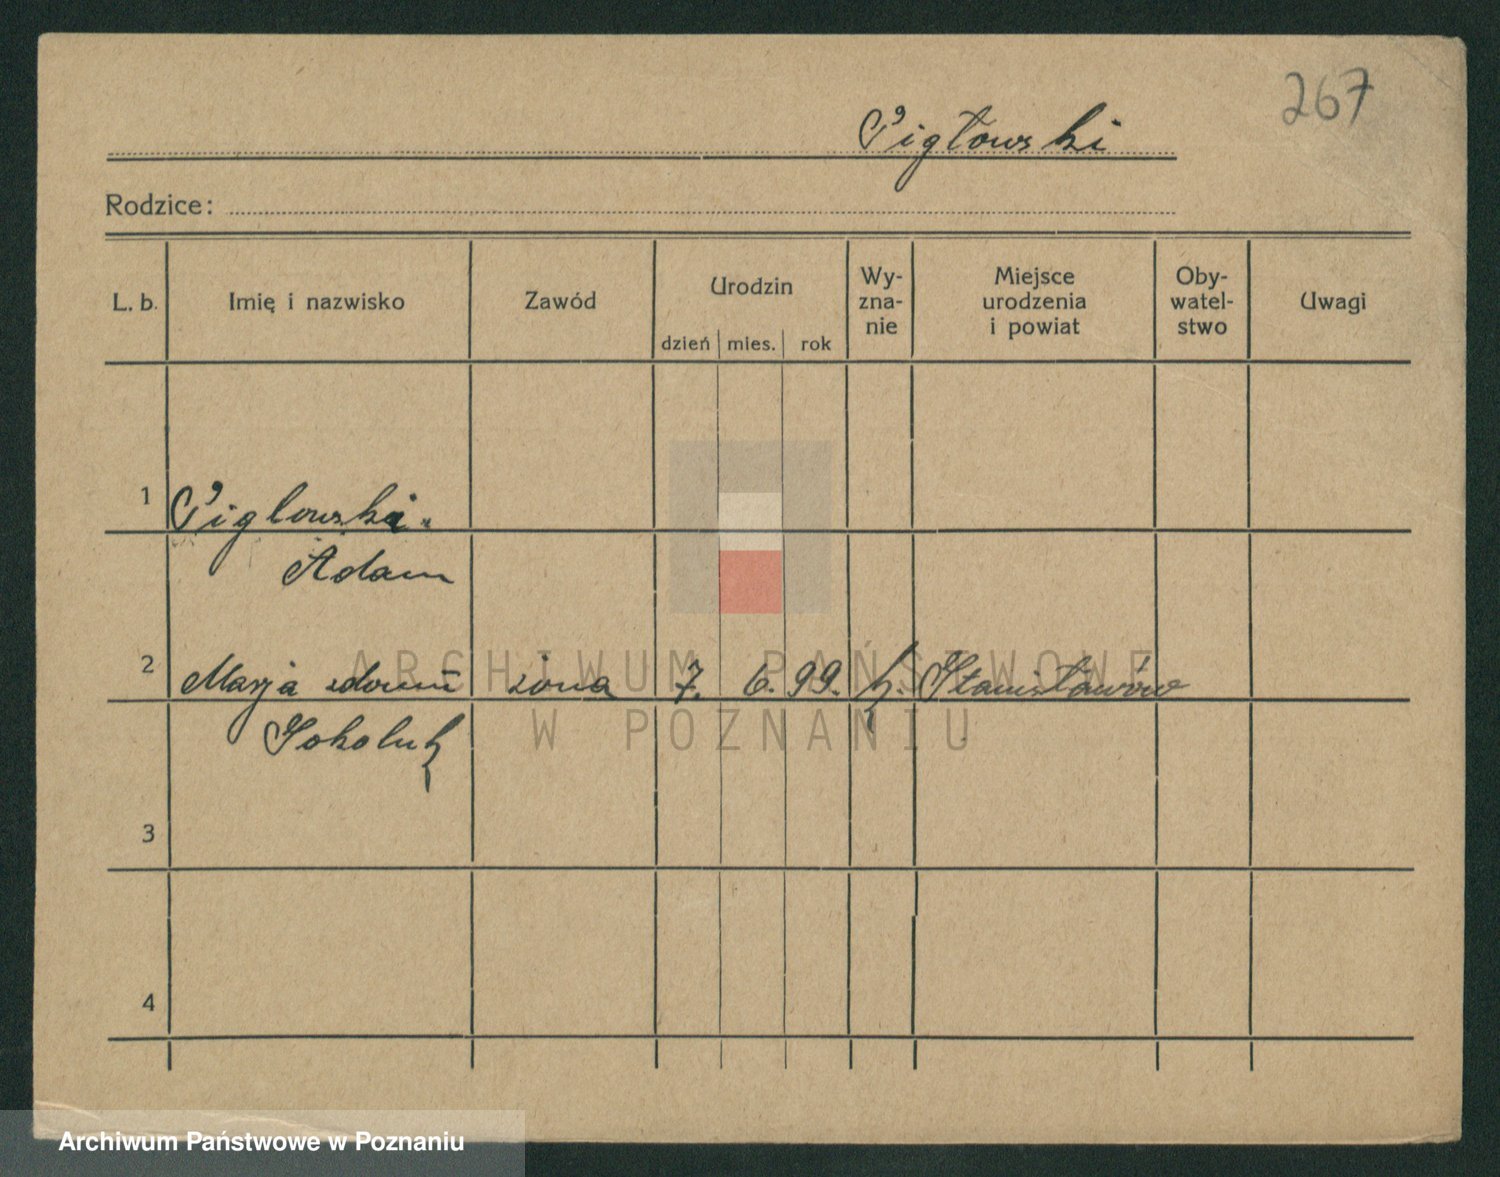 267
Pigłowski
Rodzice:
L. b. Imię i nazwisko Zawód Urodzin dzień mies. rok Wy-zna-nie Miejsce urodzenia i powiat Oby-watel-stwo Uwagi
1 Piglowski
Adam
2 Marja żona 7. 6. 99. k. Stanisławów
3
4
ARCHIWUM PAŃSTWOWE
W POZNANIU
Archiwum Państwowe w Poznaniu